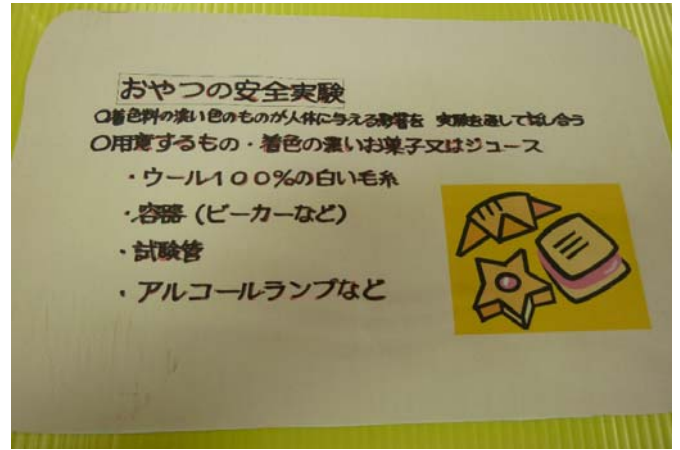 おやつの安全実験
○着色料の濃い色のものが人体に与える影響を 実験を通して話し合う
○用意するもの・着色の濃いお菓子又はジュース
・ウール100%の白い毛糸
・容器(ビーカーなど)
・試験管
・アルコールランプなど